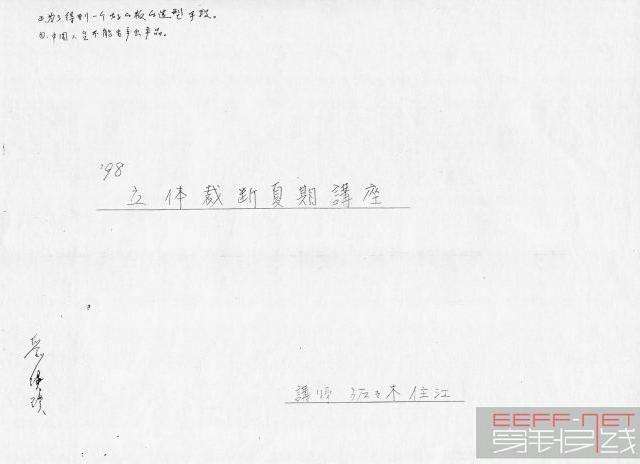 ①为了得到一个好的板的造型手段。
②.中国人呈不能出手出产品。
'98
立体裁断夏期講座
講師 佐々木住江
EEFF-NET
穿针引线